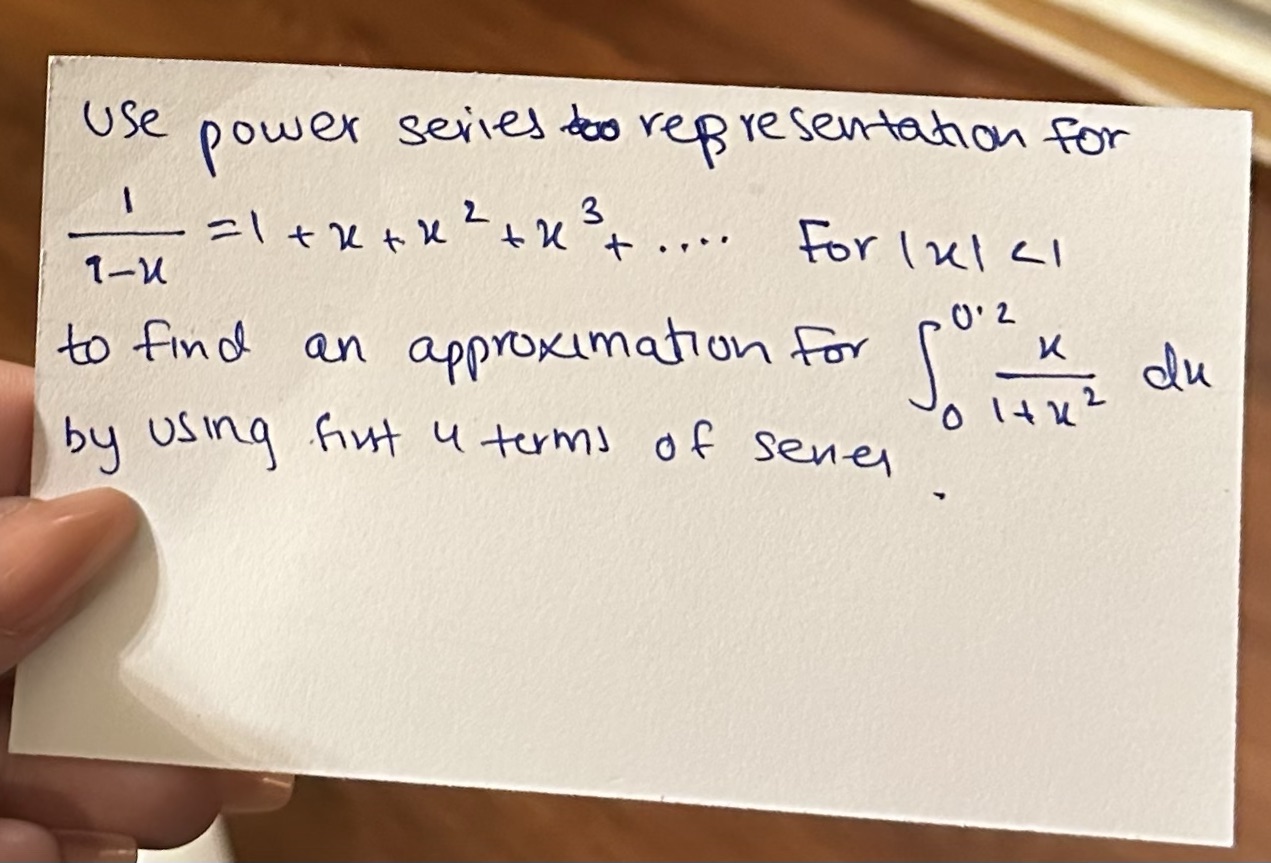 Use power series representation for
1/(1-x) = 1 + x + x² + x³ + .... For |x| < 1
to find an approximation for ∫₀^0.2 x/(1+x²) dx
by using first 4 terms of series.